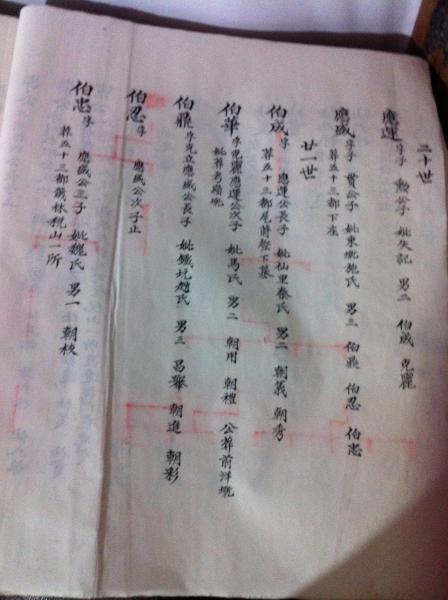 二十世
應運 字子 勲公子 妣失記 男二 伯成 克寵
應盛 字子 貫公子 妣東坑施氏 男三 伯鼎 伯忍 伯忠
葬五十三都下庄
廿一世
伯成 字 應運公長子 妣仙里秦氏 男二 朝義 朝秀
葬五十三都尾 下墓
伯華 字克寵 應運公次子 妣馬氏 男二 朝用 朝禮 公葬前洋坑
妣葬
伯鼎 字克立 應盛公長子 妣鐵坑趙氏 男三 昌聚 朝進 朝彩
伯忍 字 應盛公次子止
伯忠 字 應盛公三子 妣魏氏 男一 朝枝
葬五十三都 林 山一所